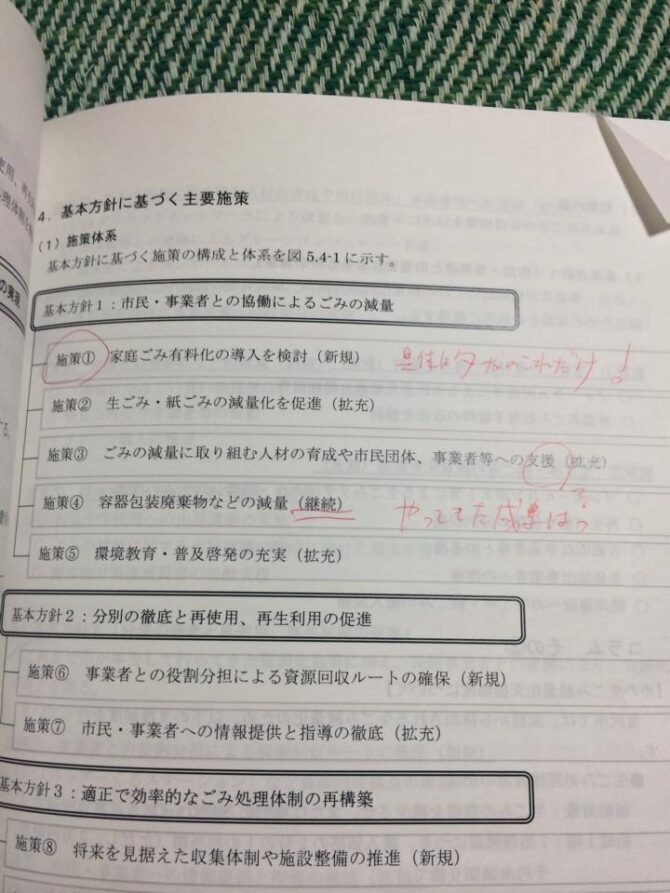 4. 基本方針に基づく主要施策
(1) 施策体系
基本方針に基づく施策の構成と体系を図 5.4-1 に示す。
基本方針1:市民・事業者との協働によるごみの減量
施策① 家庭ごみ有料化の導入を検討(新規) 具体的なのこれだけ!
施策② 生ごみ・紙ごみの減量化を促進(拡充)
施策③ ごみの減量に取り組む人材の育成や市民団体、事業者等への支援(拡充)
?
施策④ 容器包装廃棄物などの減量(継続) やってきた成果は?
施策⑤ 環境教育・普及啓発の充実(拡充)
基本方針2:分別の徹底と再使用、再生利用の促進
施策⑥ 事業者との役割分担による資源回収ルートの確保(新規)
施策⑦ 市民・事業者への情報提供と指導の徹底(拡充)
基本方針3:適正で効率的なごみ処理体制の再構築
施策⑧ 将来を見据えた収集体制や施設整備の推進(新規)